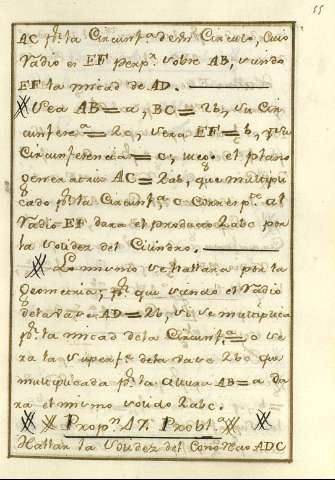 55
AC pr. la Circunf.a de un Circulo, Cuio
Radio es EF perp.r sobre AB, siendo
EF la mitad de AD.
Sea AB=a, BC=2b, su Cir
cunferen.a=2c, sera EF=b, y su
Circunferencia=c, luego el plano
generatriz AC=2ab, que multipli
cado pr. la Circunf.a c Correspte. al
Radio EF dara el producto 2abc por
la solidez del Cilindro.
Lo mismo se hallara por la
geometria, pr. que siendo el Radio
dela vase AD=2b, si se multiplica
pr. la mitad dela Circunf.a=c se
ra la superf.e dela vase 2bc que
multiplicada pr. la altura AB=a da
ra el mismo solido 2abc.
Prop.n 47. Probl.a
Hallar la Solidez del Cono ADC